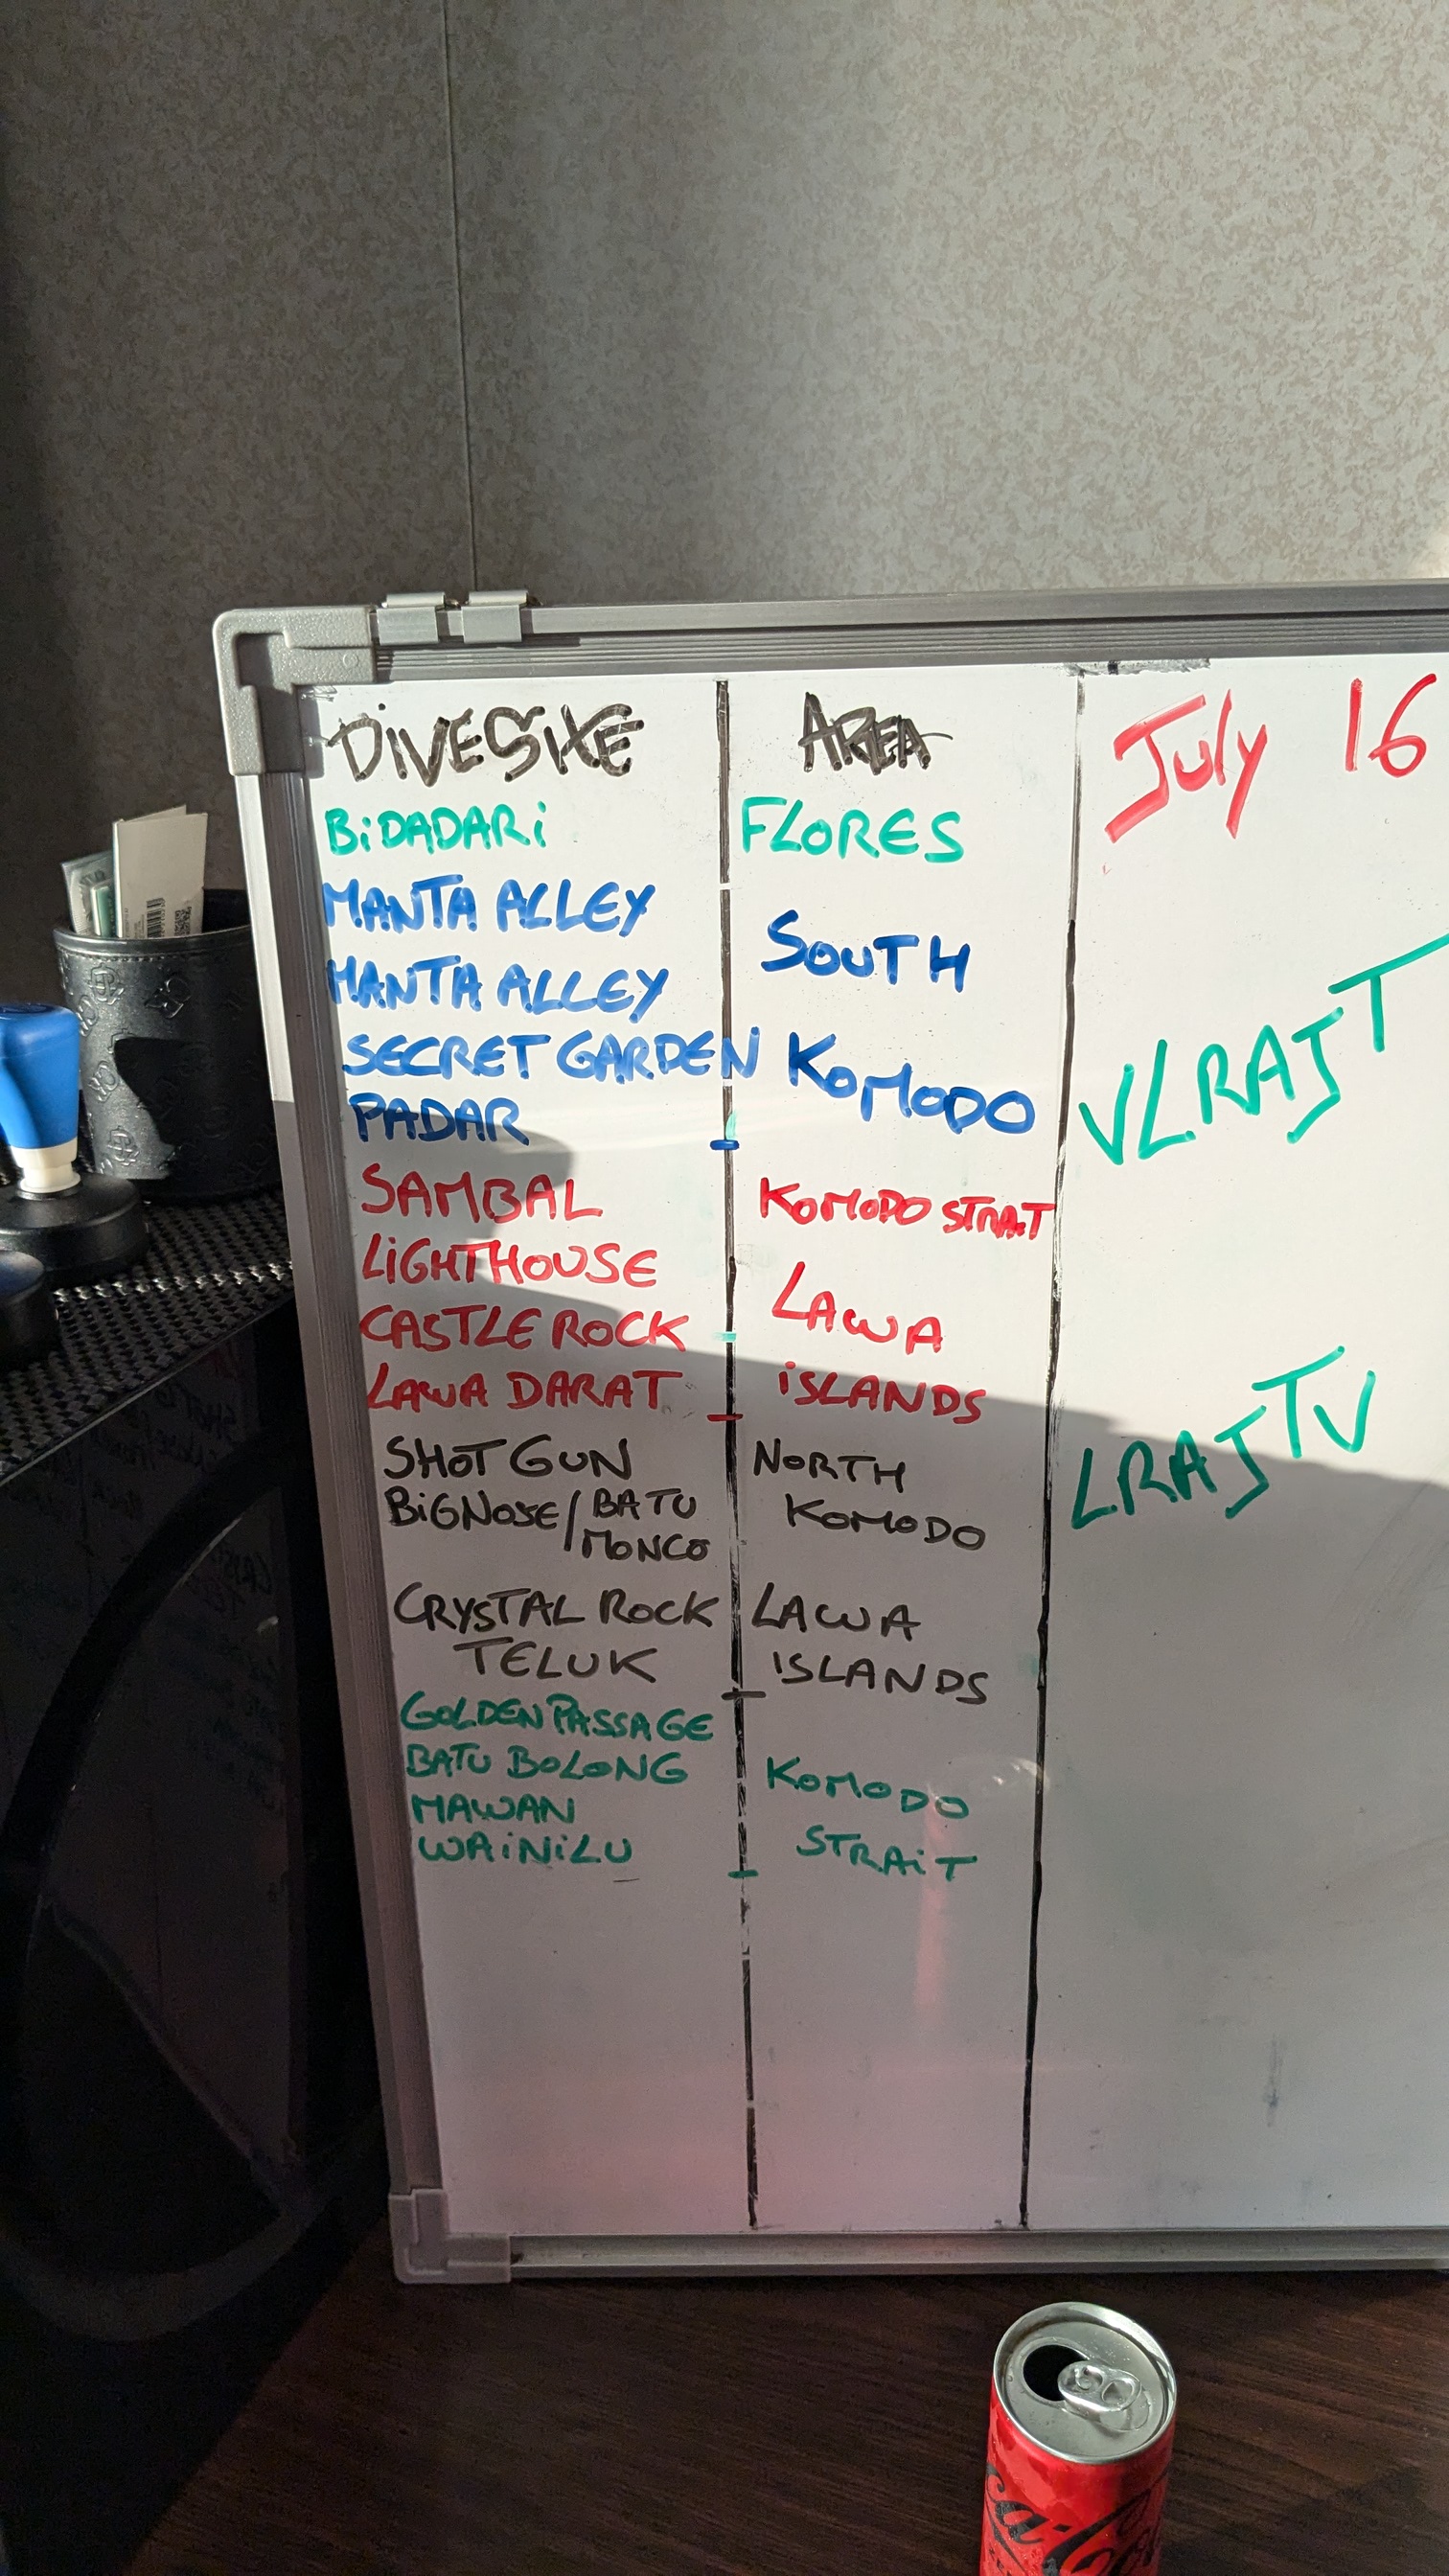 DiVESiTE
AREA
July 16
BiDADARi
FLORES
MANTA ALLEY
SOUTH
MANTA ALLEY
SECRET GARDEN
KOMODO
PADAR
VLRAJT
SAMBAL
KOMODO STRAiT
LiGHTHOUSE
LAWA
CASTLE ROCK
LAWA DARAT
iSLANDS
LRAJTV
SHOTGUN
NORTH
BiGNOSE/BATU
MONCO
KOMODO
CRYSTAL ROCK
LAWA
TELUK
ISLANDS
GOLDEN PASSAGE
BATU BOLONG
KOMODO
MAWAN
WAiNiLU
STRAiT